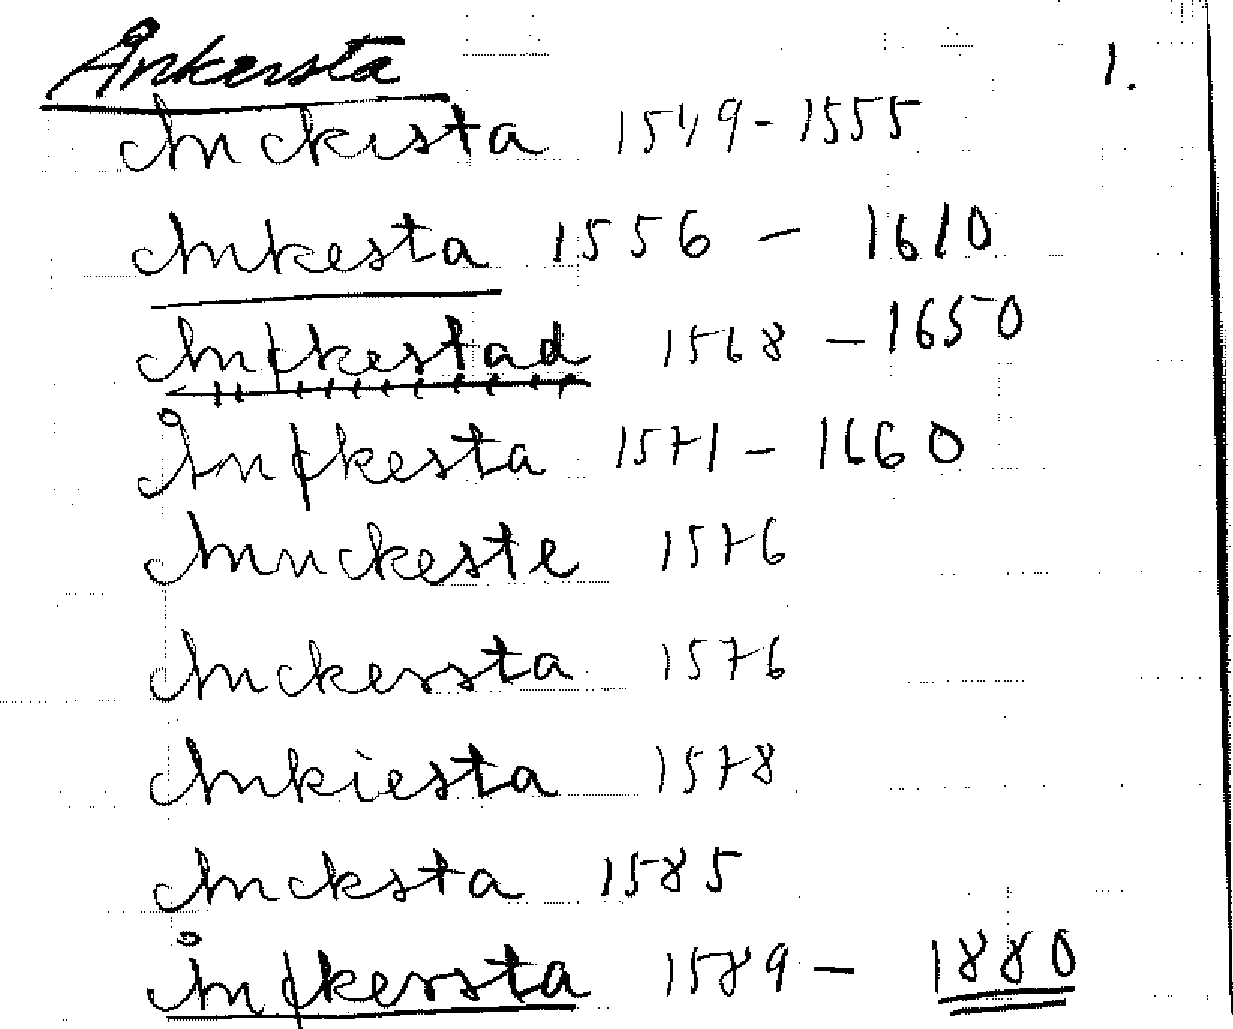 Ånkersta 1.
Anckista 1549-1555
Ankesta 1556 - 1610
Anckestad 1568 - 1650
Ånckesta 1571 - 1660
Annckeste 1576
Anckersta 1576
Ankiesta 1578
Ancksta 1585
Ånckersta 1589 - 1880